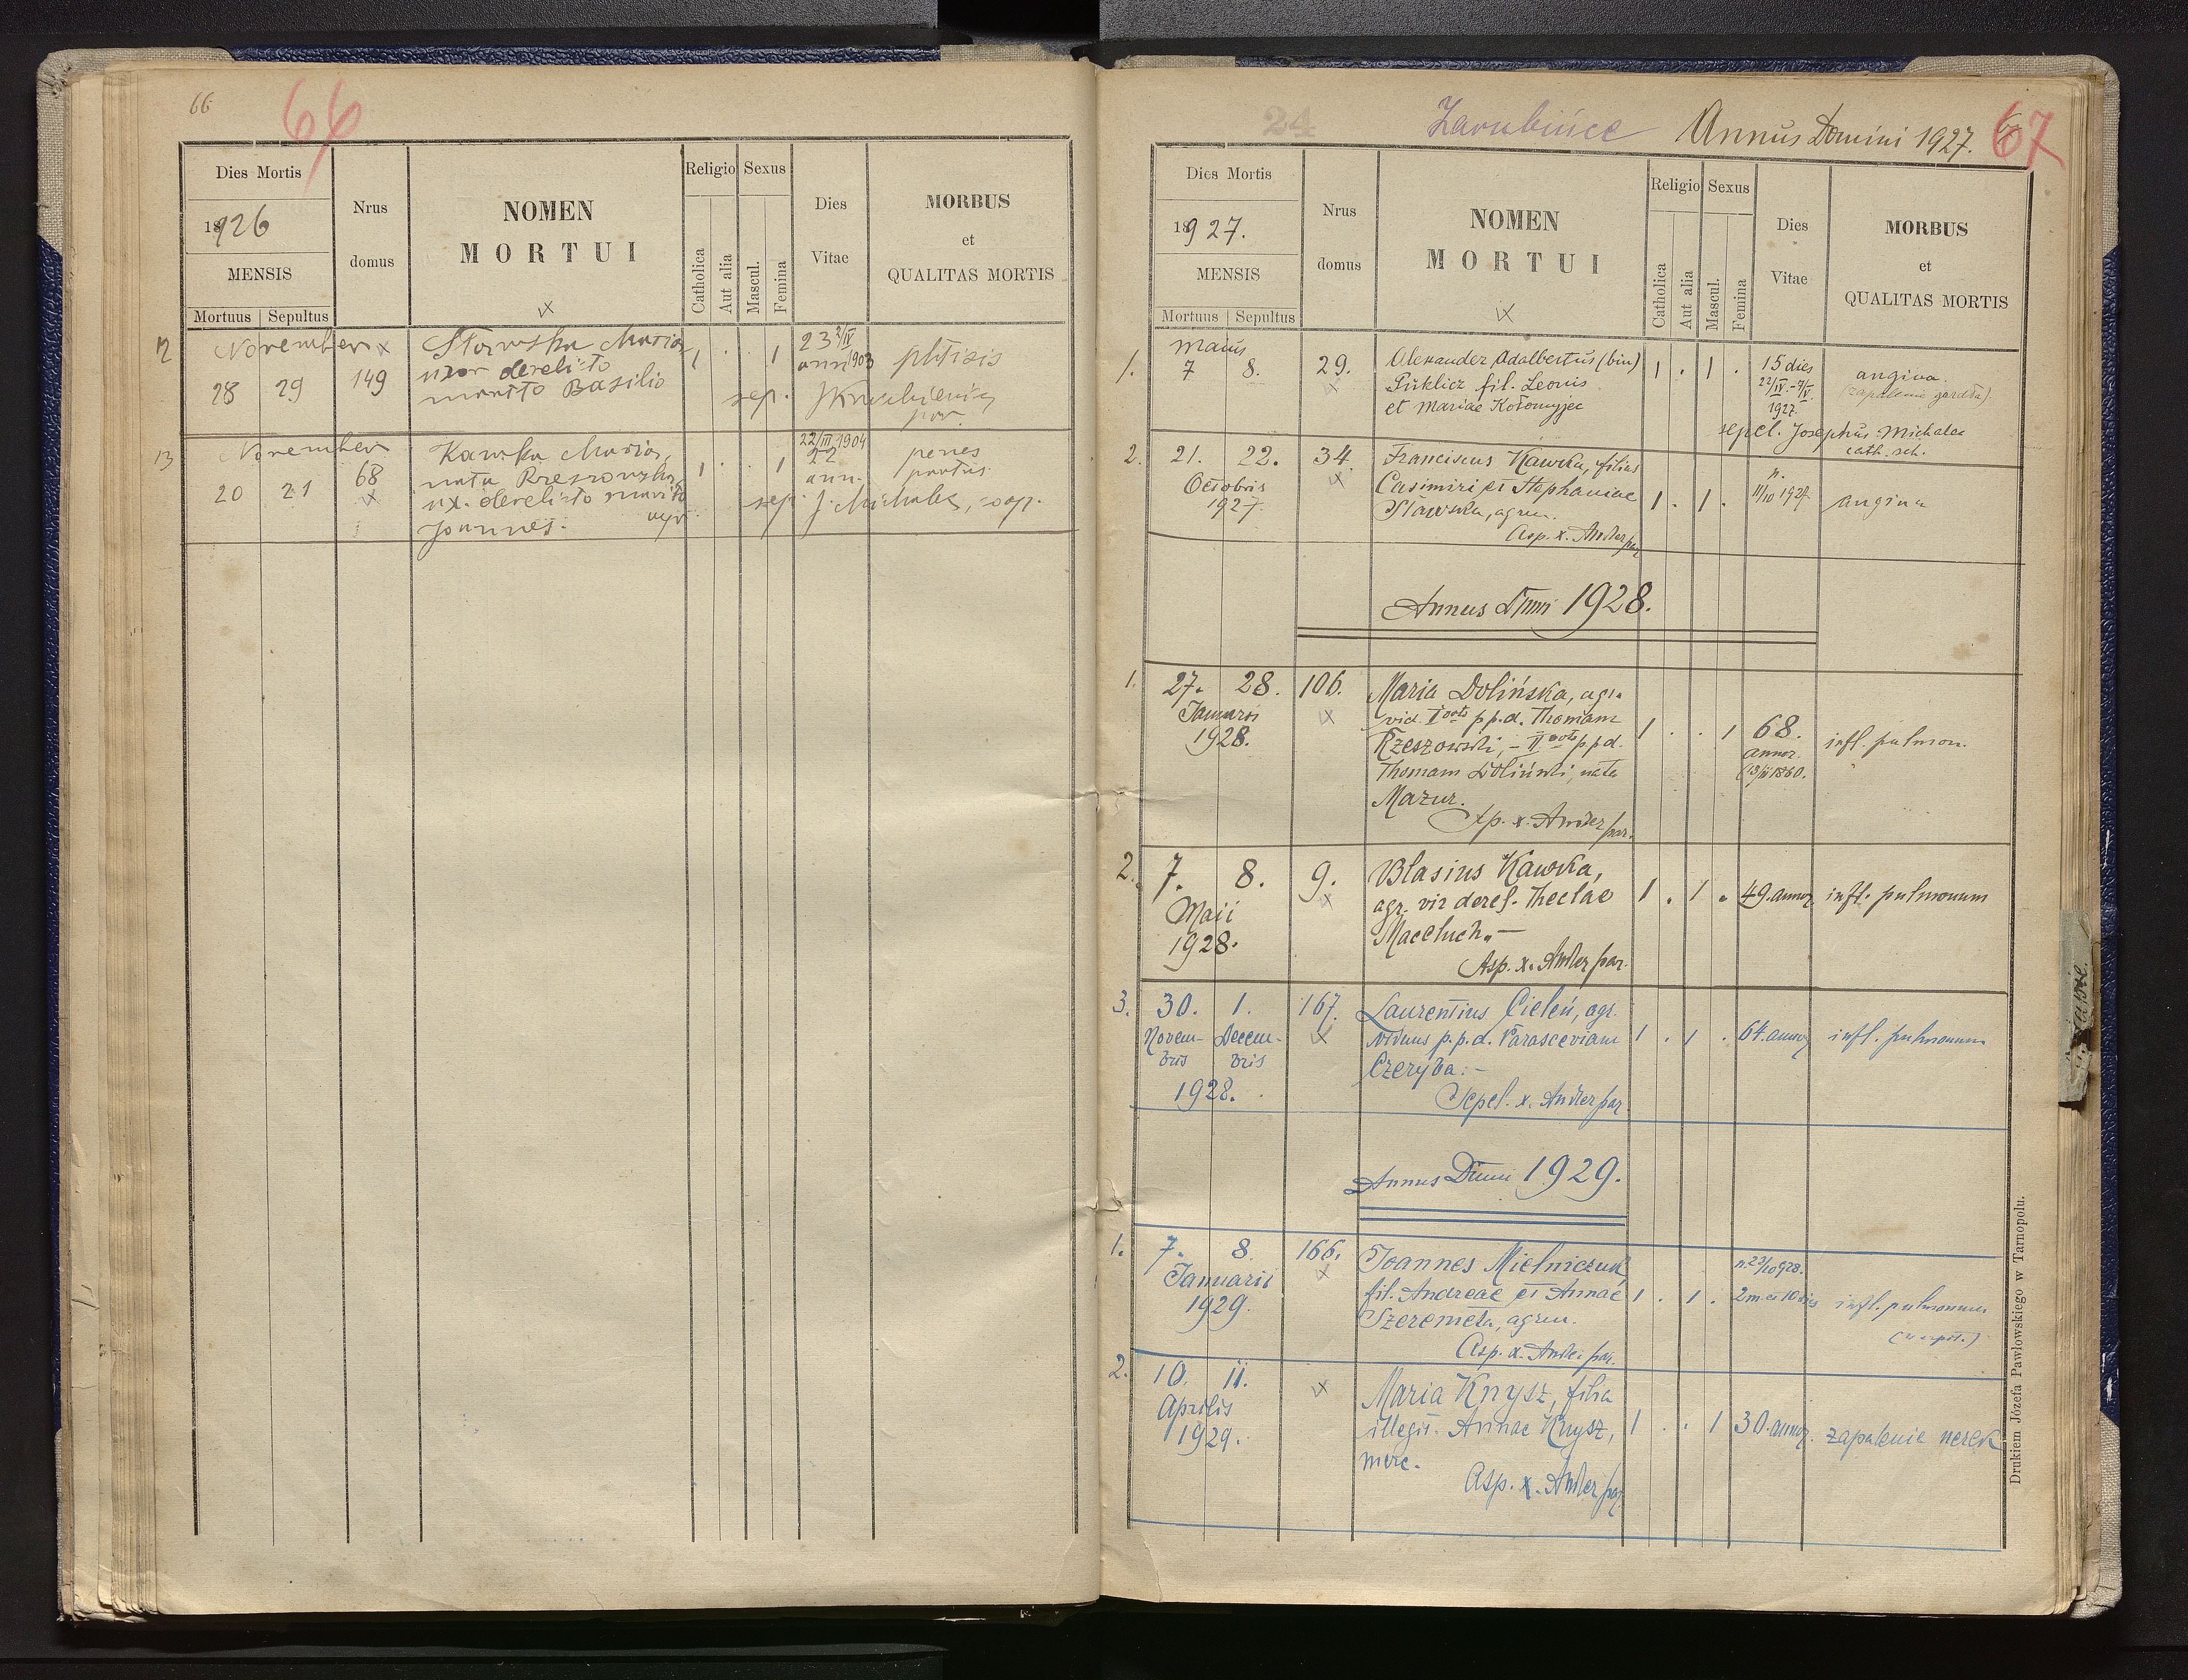 66
66
Dies Mortis
1926
MENSIS
Mortuus Sepultus
Nrus domus
NOMEN
MORTUI
Religio
Catholica
Aut alia
Sexus
Mascul.
Femina
Dies Vitae
MORBUS
et
QUALITAS MORTIS
12 November
28 29 149
Sławska Maria
uxor derelicto
marito Basilio
1 . . 1
23 2/IV
ann 1903
phtisis
sep.
par.
13 November
20 21 68
Kawska Maria,
nata Rzeszowska,
ux. derelicto marito
Joannes. agr.
1 . . 1
22/III 1904
22
ann.
penes
partus
sep. J. Michalec, coop.
24 Zarubińce Annus Domini 1927. 67
Dies Mortis
1927.
MENSIS
Mortuus Sepultus
Nrus domus
NOMEN
MORTUI
Religio
Catholica
Aut alia
Sexus
Mascul.
Femina
Dies Vitae
MORBUS
et
QUALITAS MORTIS
1. Maius
7 8. 29.
Alexander Adalbertus (bin)
Puklicz fil. Leonis
et Mariae Kołomyjec
1 . 1 .
15 dies
22/IV.-7/V.
1927.
angina
(zapalenie gardła)
sepel. Josephus Michalec
cath. sch.
2. 21. 22. 34.
Octobris
1927.
Franciscus Kawska, filius
Casimiri et Stephaniae
Sławska, agrcu.
Asp. x. Andler par.
1 . 1 .
n.
11/10 1927.
angina
Annus Dnni 1928.
1. 27. 28. 106.
Januarii
1928.
Maria Dolińska, agr.
vid. I voto p.p.d. Thomam
Rzeszowski, - II voto p.p.d.
Thomam Doliński, nata
Mazur.
Sp. x. Andler par.
1 . . 1
68.
annor.
infl. pulmon.
2. 7. 8. 9.
Maii
1928.
Blasius Kawska,
agr. vir derel. Theclae
Maceluch. -
Asp. x. Andler par.
1 . 1 . 49. annor. infl. pulmonum
3. 30. 1. 167.
Novem- Decem-
bris bris
1928.
Laurentius Cieleń, agr.
viduus p.p.d. Parasceviam
Czeryba. -
Sepel. x. Andler par.
1 . 1 . 64. annor. infl. pulmonum
Annus Dnni 1929.
1. 7. 8. 166.
Januarii
1929.
Joannes Mielniczuk
fil. Andreae et Annae
Szeremeta, agrcu.
Asp. x. Andler par.
1 . 1 .
n. 23/10 928.
2 m. et 10 dies
infl. pulmonum
2. 10. 11.
Aprilis
1929.
Maria Knysz, filia
illegit. Annae Knysz,
merc.
Asp. x. Andler par.
1 . . 1 30. annor. zapalenie nerek
Drukiem Józefa Pawłowskiego w Tarnopolu.